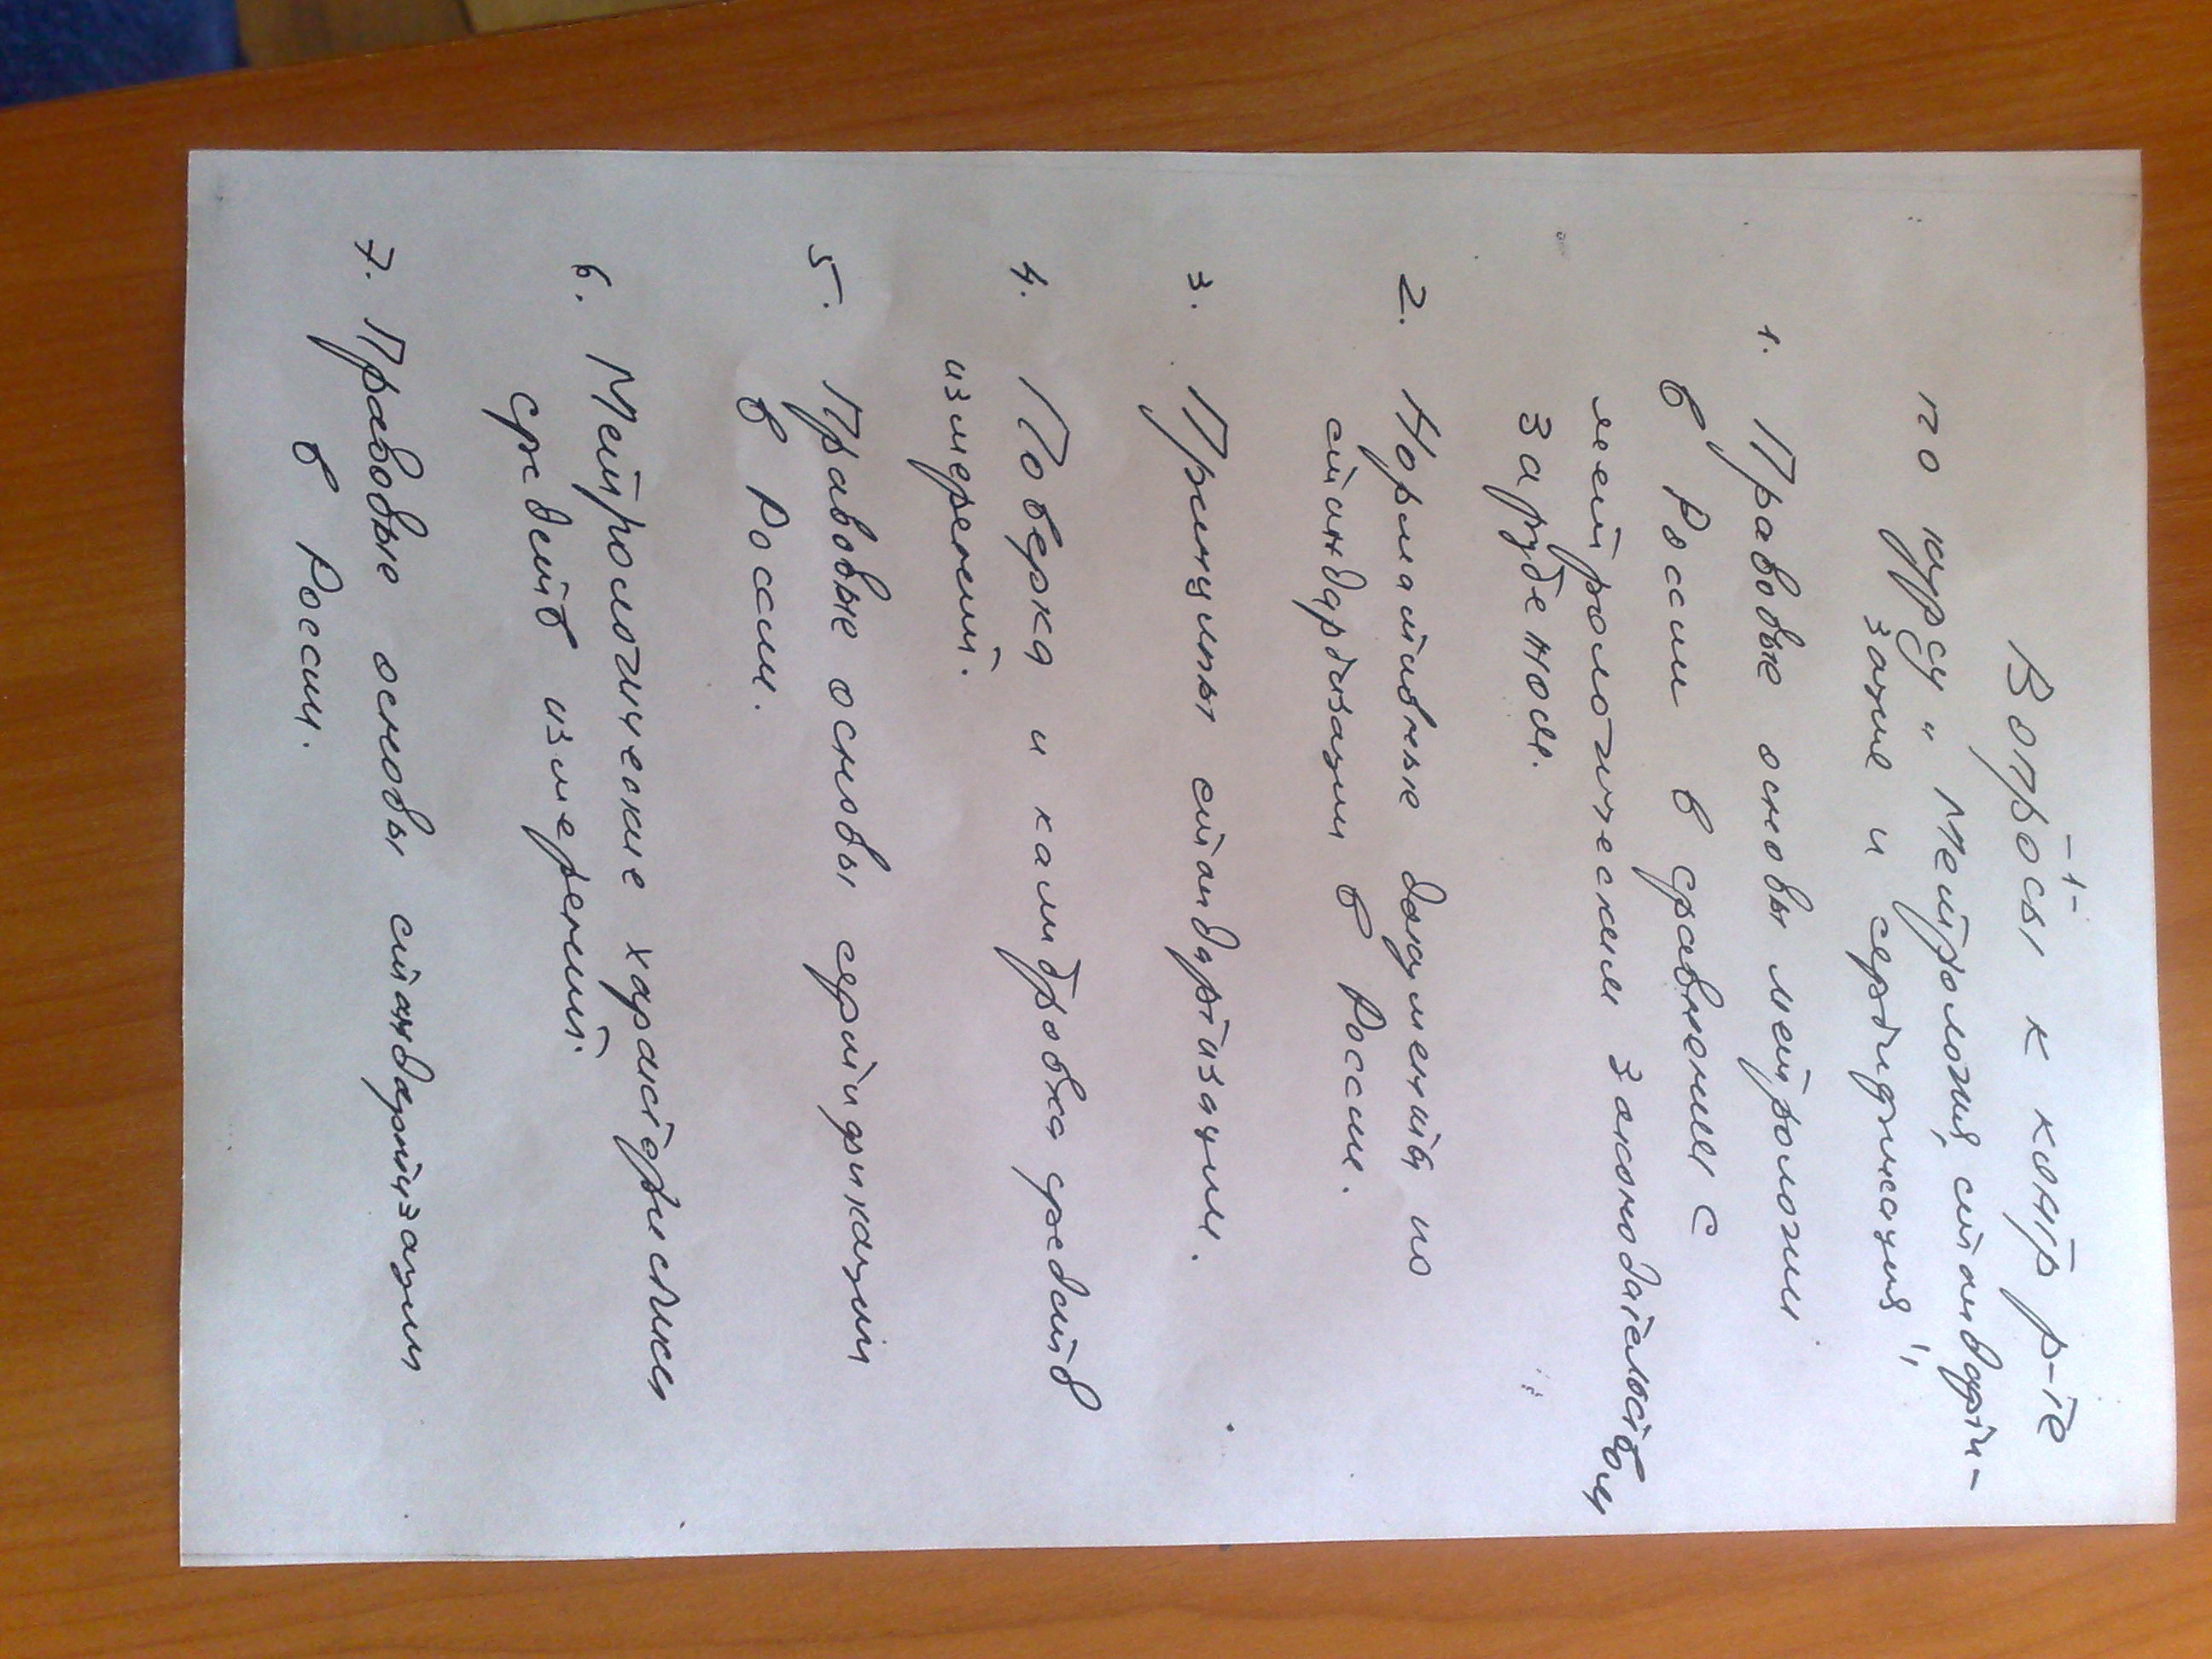 -1-
Вопросы к контр р-те
по курсу "Метрология, стандарти-
зация и сертификация",
1. Правовые основы метрологии
в России в сравнении с
метрологическим законодательством
за рубежом.
2. Нормативные документы по
стандартизации в России.
3. Принципы стандартизации.
4. Поверка и калибровка средств
измерений.
5. Правовые основы сертификации
в России.
6. Метрологические характеристики
средств измерений.
7. Правовые основы стандартизации
в России.